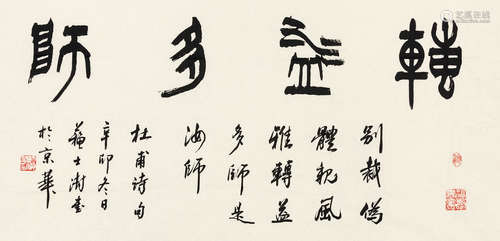 轉益多師
別裁偽
體親風
雅轉益
多師是
汝師
杜甫诗句
辛卯冬日
蘇士澍書
於京華